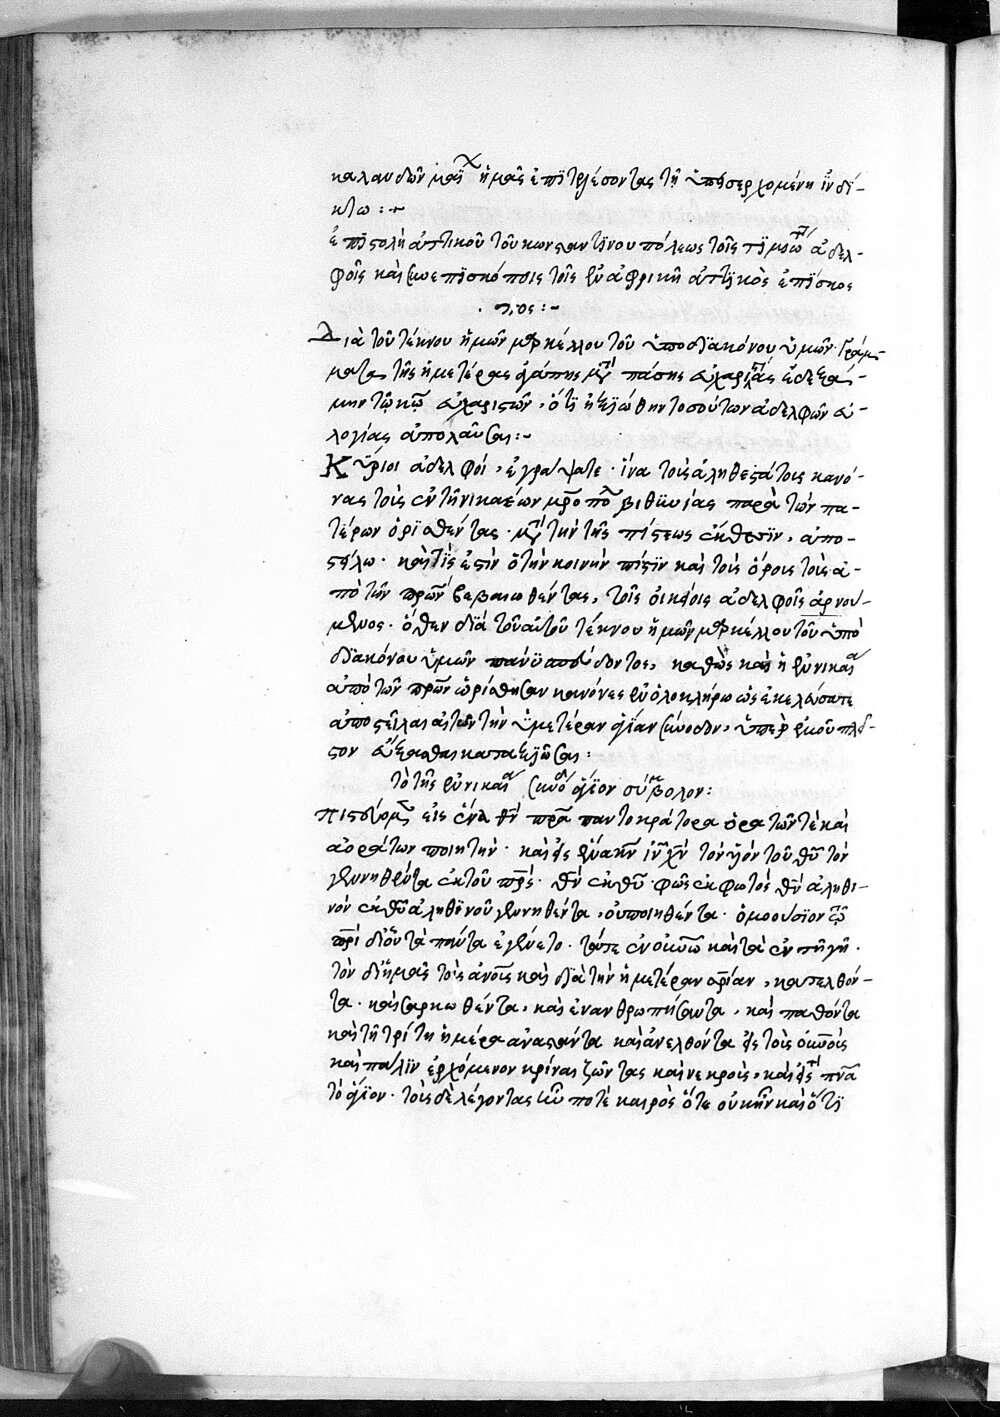 καλανδῶν μαΐ ἡμᾶς ἐπιτρέσοντας τῇ ὑπεισερχομένῃ ἰνδί-
κτω :~
ἐπιστολὴ ἀττικοῦ τοῦ κωνσταντίνου πόλεως τοῖς τιμιω τ ἀδελ-
φοῖς καὶ συνεπισκόποις τοῖς ἐν ἀφρικῇ ἀττικὸς ἐπίσκο
πος :~
Διὰ τοῦ τέκνου ἡμῶν μαρκέλλου τοῦ ὑποδιακόνου ὑμῶν γράμ-
ματα τῆς ἡμετέρας ἀγάπης μετὰ πάσης εὐχαριστίας ἐδεξά-
μην τῷ κω εὐχαριστῶν, ὅτι ἠξιώθην τοσούτων ἀδελφῶν εὐ-
λογίας ἀπολαῦσαι :~
Κύριοι ἀδελφοί, ἐγράψατε · ἵνα τοὺς ἀληθεστάτους κανό-
νας τοὺς ἐν τῇ νικαέων μρο πο βιθυνίας παρὰ τῶν πα-
τέρων ὁρισθέντας · μετὰ τὴν τῆς πίστεως ἔκθεσιν, ἀπο-
στείλω · καὶ τίς ἐστὶν ὁ τὴν κοινὴν πίστιν καὶ τοὺς ὅρους τοὺς ἀ-
πὸ τῶν πρων βεβαιωθέντας, τοῖς οἰκείοις ἀδελφοῖς ἀρνού-
μενος · ὅθεν διὰ τοῦ αὐτοῦ τέκνου ἡμῶν μαρκέλλου τοῦ ὑπο
διακόνου ὑμῶν καθὼς καὶ ἡ ἐν νικαία
ἀπὸ τῶν πρων ὡρίσθησαν κανόνες ἐν ὁλοκλήρω ὡς ἐκελεύσατε
ἀποστεῖλαι αἰτῶ τὴν ὑμετέραν ἁγίαν σύνοδον, ὑπὲρ ἐμοῦ πλεῖ-
στον εὔξασθαι καταξιῶσαι :
τὸ τῆς ἐν νικαία συνο ἅγιον σύμβολον :
πιστεύομεν εἰς ἕνα θν πρα παντοκράτορα ὁρατῶν τὲ καὶ
ἀοράτων ποιητὴν · καὶ εἰς ἕνα κν ιν χν τὸν υἱὸν τοῦ θυ τὸν
γεννηθέντα ἐκ τοῦ πρς · θν ἐκ θυ · φῶς ἐκ φωτός θν ἀληθι-
νὸν ἐκ θυ ἀληθινοῦ γεννηθέντα, οὐ ποιηθέντα · ὁμοούσιον τῷ
πρι δι' οὗ τὰ πάντα ἐγένετο · τά τε ἐν οὐνω καὶ τὰ ἐν τῇ γῇ ·
τὸν δι' ἡμᾶς τοὺς ανους καὶ διὰ τὴν ἡμετέραν σρίαν, κατελθόν-
τα · καὶ σαρκωθέντα, καὶ ἐνανθρωπήσαντα, καὶ παθόντα
καὶ τῇ τρίτη ἡμέρα ἀναστάντα καὶ ἀνελθόντα εἰς τοὺς οὐνους
καὶ πάλιν ἐρχόμενον κρίναι ζῶντας καὶ νεκροὺς, καὶ εἰς τὸ πνα
τὸ ἅγιον · τοὺς δὲ λέγοντας ἦν ποτὲ καιρὸς ὅτε οὐκ ἦν καὶ ὅτι